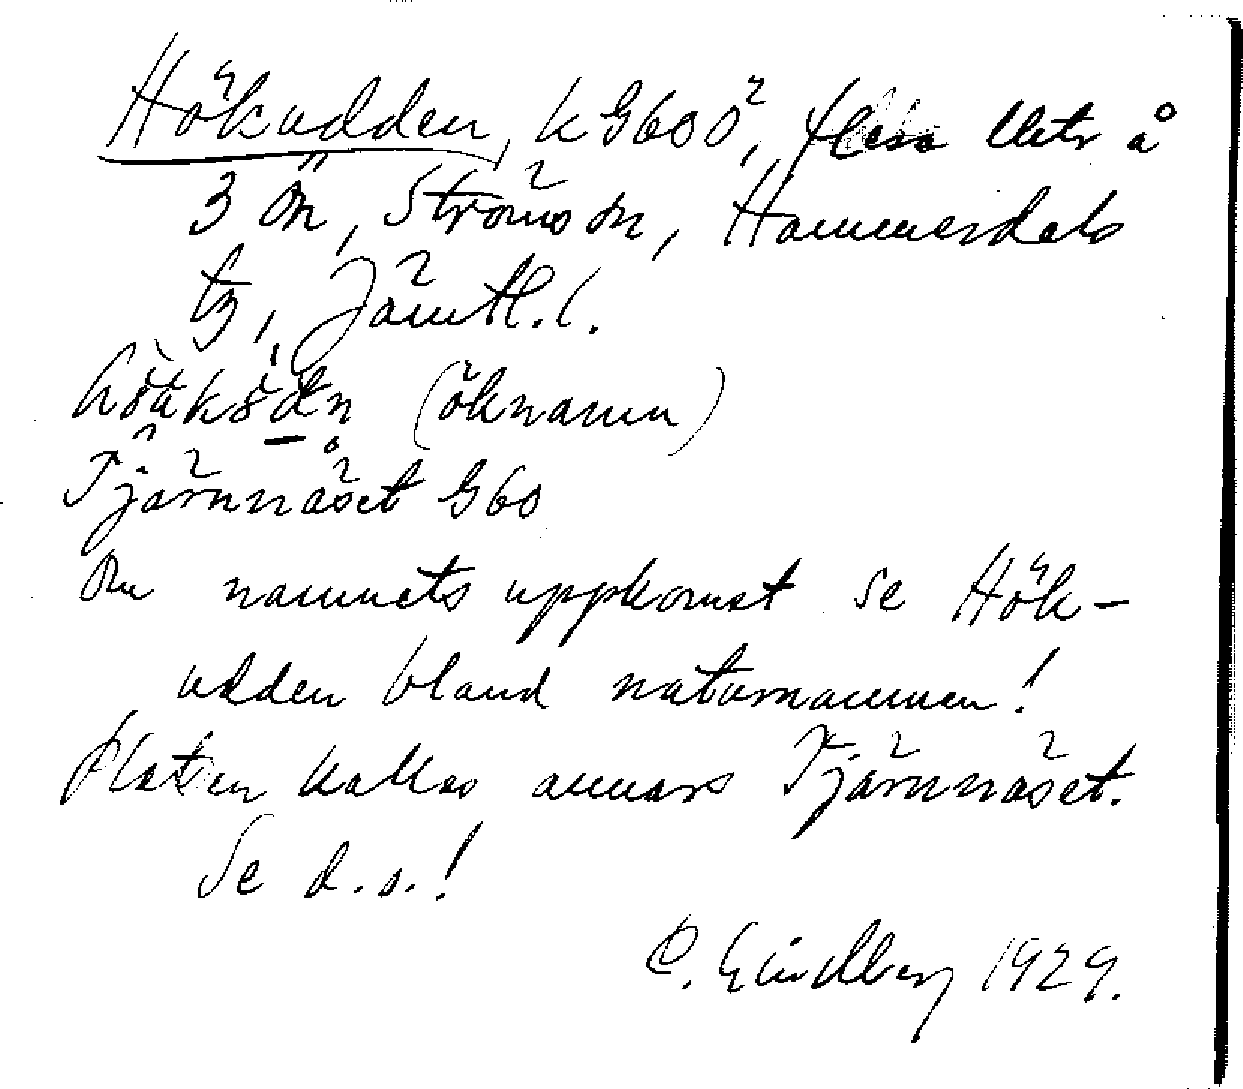 Hökudden, k G600², flera lhtr å
3 ön, Ströms sn, Hammerdals
tg, Jämtl. l.
(öknamn)
Tjärnnäset G60
Om namnets uppkomst se Hök-
udden bland naturnamnen!
Platsen kallas annars Tjärnnäset.
Se d.o.!
C. Lindberg 1929.